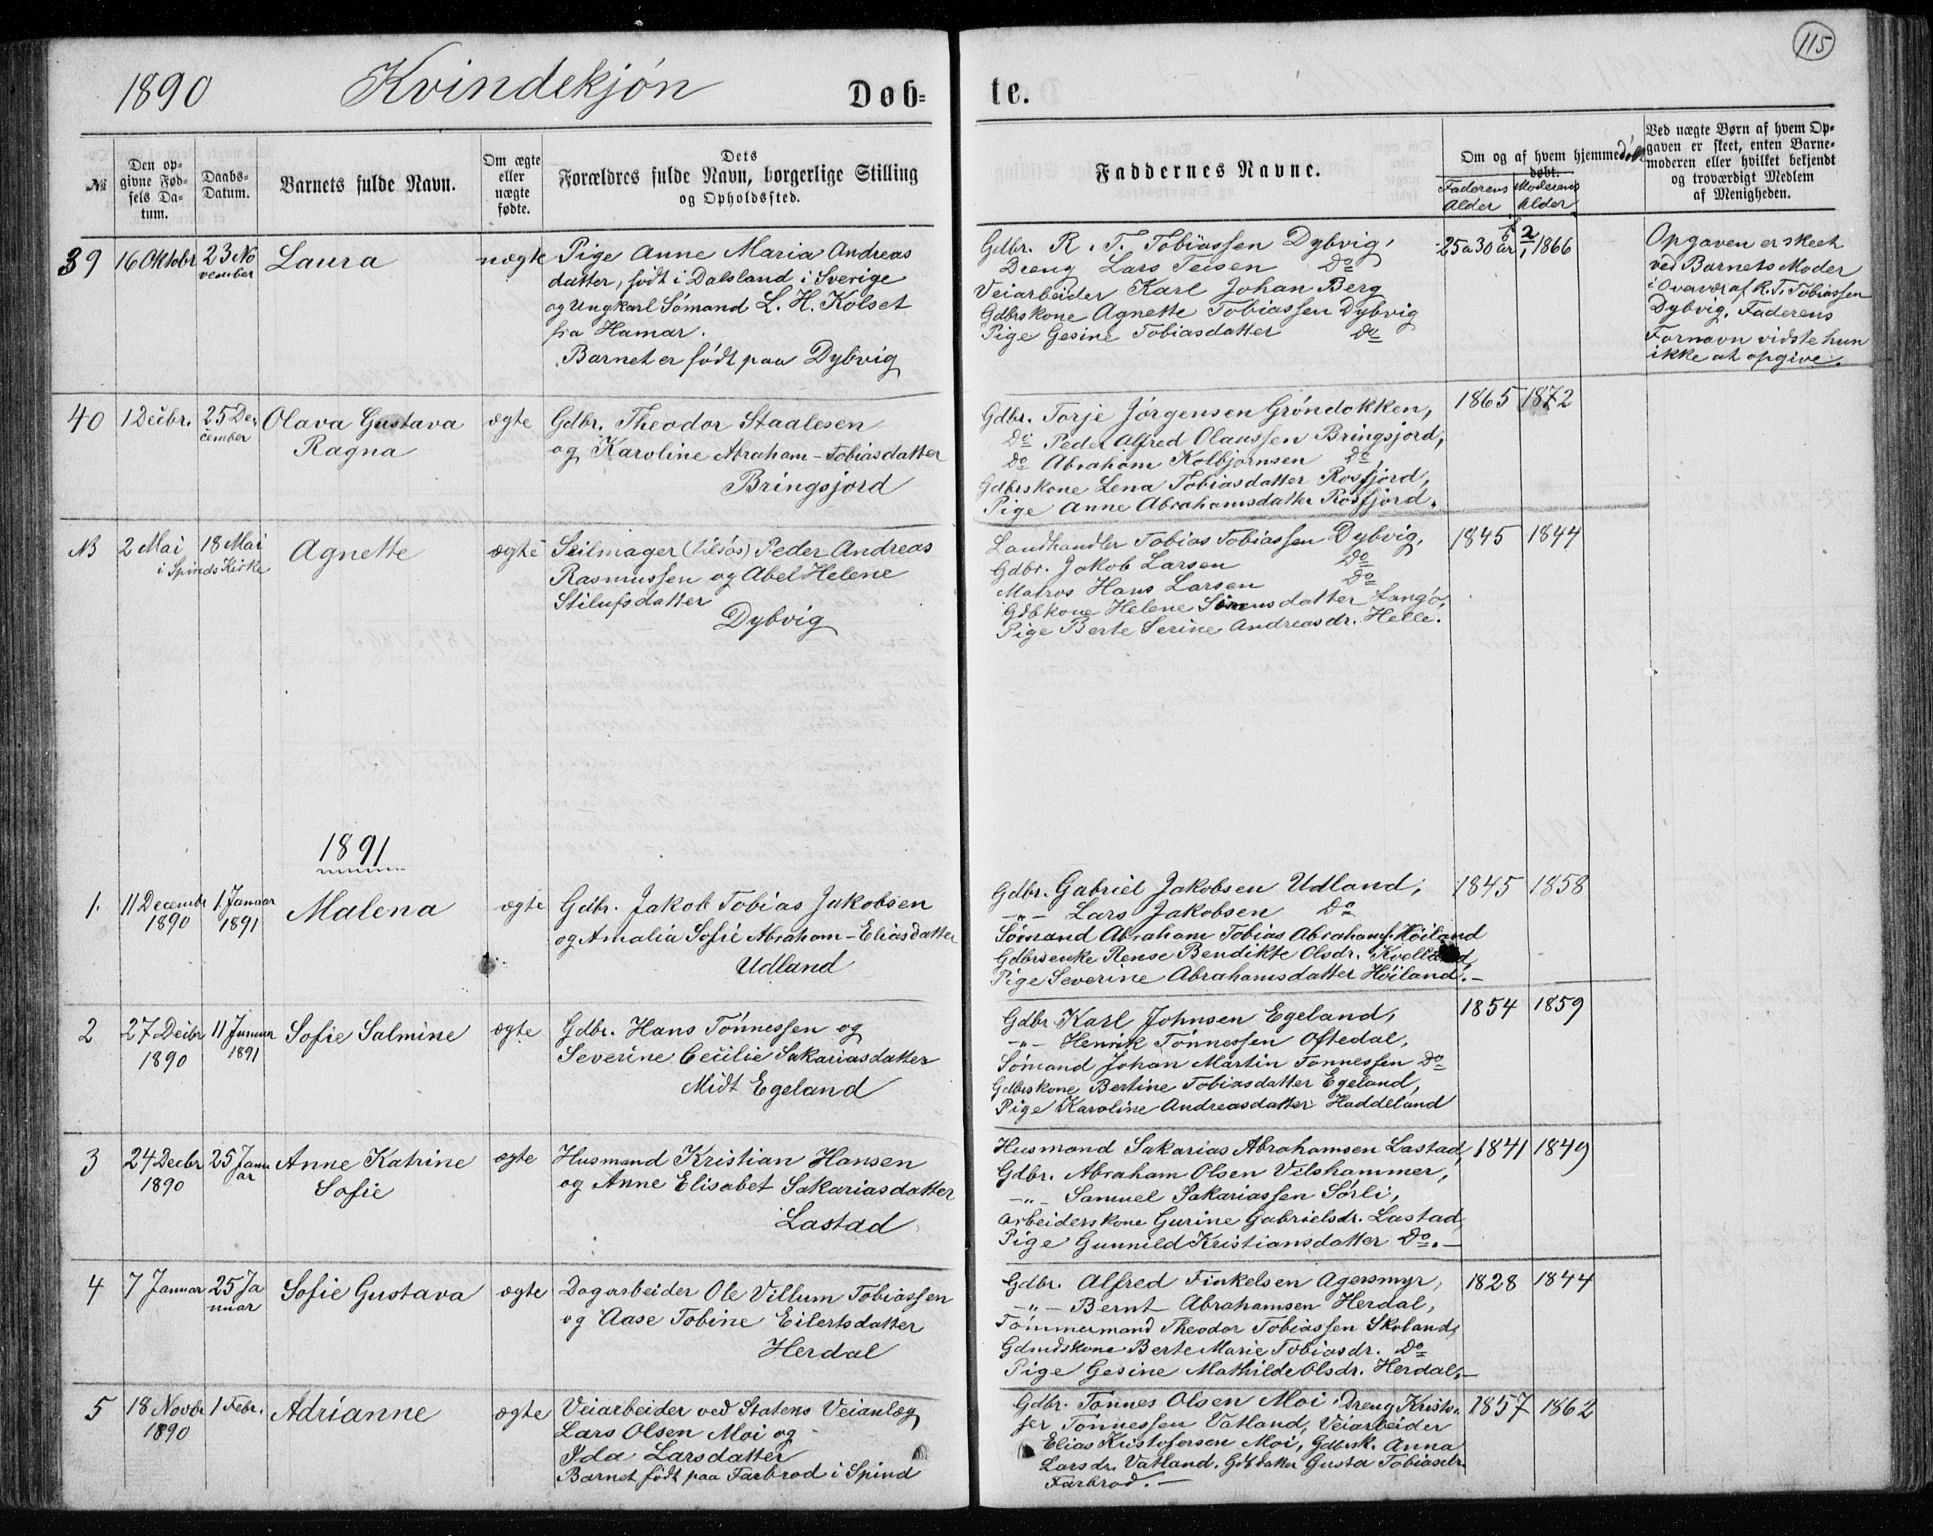 115
1890 Kvindekjón Døb-
te.
№
Den op-
givne Fød-
sels Da-
tum.
Daabs-
Datum.
Barnets fulde Navn.
Om ægte
eller
uægte
fødte.
Dets
Forældres fulde Navn, borgerlige Stilling
og Opholdssted.
Faddernes Navne.
Om og af hvem hjemmedøbt.
Faderens
Alder
Moderens
Alder
Ved uægte Børn af hvem Op-
gaven er skeet, enten Barne-
moderen eller hvilket bekjendt
og troværdigt Medlem
af Menigheden.
39
16 Oktobr
23 No
vember
Laura
uægte
Pige Anne Maria Andreas
datter, født i Dalsland i Sverige
og Ungkarl Sómand L. H. Kolset
fra Hamar.
Barnet er født paa Dybvig
Gdbr. R. T. Tobiassen Dybvig,
Dreng Lars Teisen Do
Veiarbeider Karl Johan Berg
Gdbrskone Agnette Tobiassen Dybvig
Pige Gesine Tobiasdatter Do
25 a 30 aar
1866
Opgaven er skeet
ved Barnets Moder
i Overvær af R. T. Tobiassen
Dybvig. Faderens
Fornavn vidste hun
ikke at opgive.
40
1 Decbr.
25 De-
cember
Olava Gustava
Ragna
ægte
Gdbr. Theodor Staalesen
og Karoline Abraham-Tobiasdatter
Bringsjord
Gdbr. Torje Jórgensen Gróndokken,
Do Peder Alfred Olaussen Bringsjord,
Do Abraham Kolbjornsen Do,
Gdbrskone Lena Tobiasdatter Rosfjord,
Pige Anne Abrahamsdatter Rosfjord.
1865 1872
NB
2 Mai
18 Mai
i Spinds Kirke
Agnette
ægte
Seilmager (tilsøs) Peder Andreas
Rasmussen og Abel Helene
Stilufsdatter
Dybvig
Landhandler Tobias Tobiassen Dybvig,
Gdbr. Jakob Larsen Do
Matros Hans Larsen Do
Gdbkone Helene Sórensdatter Langó,
Pige Berte Serine Andreasdr. Helle.
1845 1844
1891
1.
11 Decembr
1890
1. Januar
1891
Malena
ægte
Gdbr. Jakob Tobias Jakobsen
og Amalia Sofie Abraham-Eliasdatter
Udland
Gdbr. Gabriel Jakobsen Udland,
-"- Lars Jakobsen Do
Sómand Abraham Tobias Abrahams. Hóiland
Gdbrsenke Rense Bendikte Olsdr. Kvelland,
Pige Severine Abrahamsdatter Hóiland.-
1845 1858
2
27 Decbr
1890
11 Januar
1891
Sofie Salmine
ægte
Gdbr. Hans Tónnessen og
Severine Cecilie Sakariasdatter
Midt Egeland
Gdbr. Karl Johnsen Egeland,
-"- Henrik Tónnessen Oftedal,
Sómand Johan Martin Tonnessen Do
Gdbrskone Bertine Tobiasdatter Egeland,
Pige Karoline Andreasdatter Haddeland
1854 1859
3
24 Decbr
1890
25 Janu
ar
Anne Katrine
Sofie
ægte
Husmand Kristian Hansen
og Anne Elisabet Sakariasdatter
Lastad
Husmand Sakarias Abrahamsen Lastad,
Gdbr. Abraham Olsen Vilshammer,
-"- Samuel Sakariassen Sórli,
Arbeiderskone Gurine Gabrielsdr. Lastad,
Pige Gunnild Kristiansdatter Do.-
1841 1849
4
7 Januar
25 Ja
nuar
Sofie Gustava
ægte
Dagarbeider Ole Villum Tobiassen
og Aase Tobine Eilertsdatter
Herdal
Gdbr. Alfred Finkelsen Agersmyr,
-"- Bernt Abrahamsen Herdal,
Tómmermand Theodor Tobiassen Skoland,
Gdmdskone Berte Marie Tobiasdr. Do
Pige Gesine Mathilde Olsdr. Herdal.-
1828 1844
5
18 Novbr
1890
1 Febr.
Adrianne
ægte
Veiarbeider ved Statens Veianlæg
Lars Olsen Moi og
Ida Larsdatter
Barnet født paa Farbrod i Spind
Gdbr. Tónnes Olsen Moi, Dreng Kristo-
fer Tónnessen Vatland, Veiarbeider
Elias Kristofersen Moi, Gdbrsk. Anna
Larsdr. Vatland. Gdbdatter Gusta Tobiasdr.
Farbrod.-
1857 1862